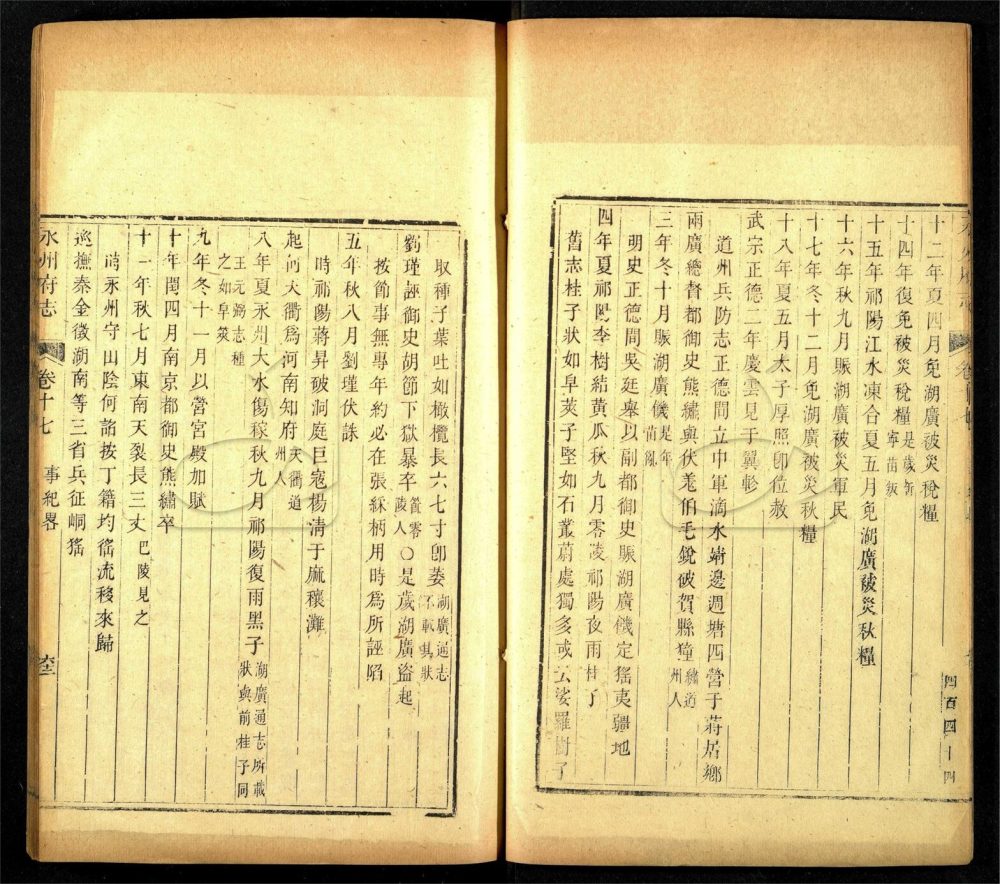 十二年夏四月免湖廣被災稅糧
十四年復免被災稅糧是歲新寧苗叛
十五年祁陽江水凍合夏五月免湖廣被災秋糧
十六年秋九月賑湖廣被災軍民
十七年冬十二月免湖廣被災秋糧
十八年夏五月太子厚照卽位赦
武宗正德二年慶雲見于翼軫
道州兵防志正德間立中軍滴水靖邊遏塘四營于蔣居鄉
兩廣總督都御史熊繡與伏羌伯毛銳破賀縣獞繡道州人
三年冬十月賑湖廣饑是年苗亂
明史正德間吳廷舉以副都御史賑湖廣饑定猺夷疆地
四年夏祁陽李樹結黃瓜秋九月零陵祁陽夜雨桂子
舊志桂子狀如皁莢子堅如石叢蔚處獨多或云娑羅樹子
四百四十四
取種子葉吐如橄欖長六七寸卽萎湖廣通志不載其狀
劉瑾誣御史胡節下獄暴卒節零陵人○是歲湖廣盜起
按節事無專年約必在張綵柄用時爲所誣陷
五年秋八月劉瑾伏誅
時祁陽蔣昇破洞庭巨寇楊淸于麻穰灘
起何天衢爲河南知府天衢道州人
八年夏永州大水傷稼秋九月祁陽復雨黑子湖廣通志所載狀與前桂子同
王元弼志種之如皁莢
九年冬十一月以營宮殿加賦
十年閏四月南京都御史熊繡卒
十一年秋七月東南天裂長三丈巴陵見之
時永州守山陰何詔按丁籍均徭流移來歸
巡撫秦金徵湖南等三省兵征峒猺
永州府志
卷十七
事紀畧